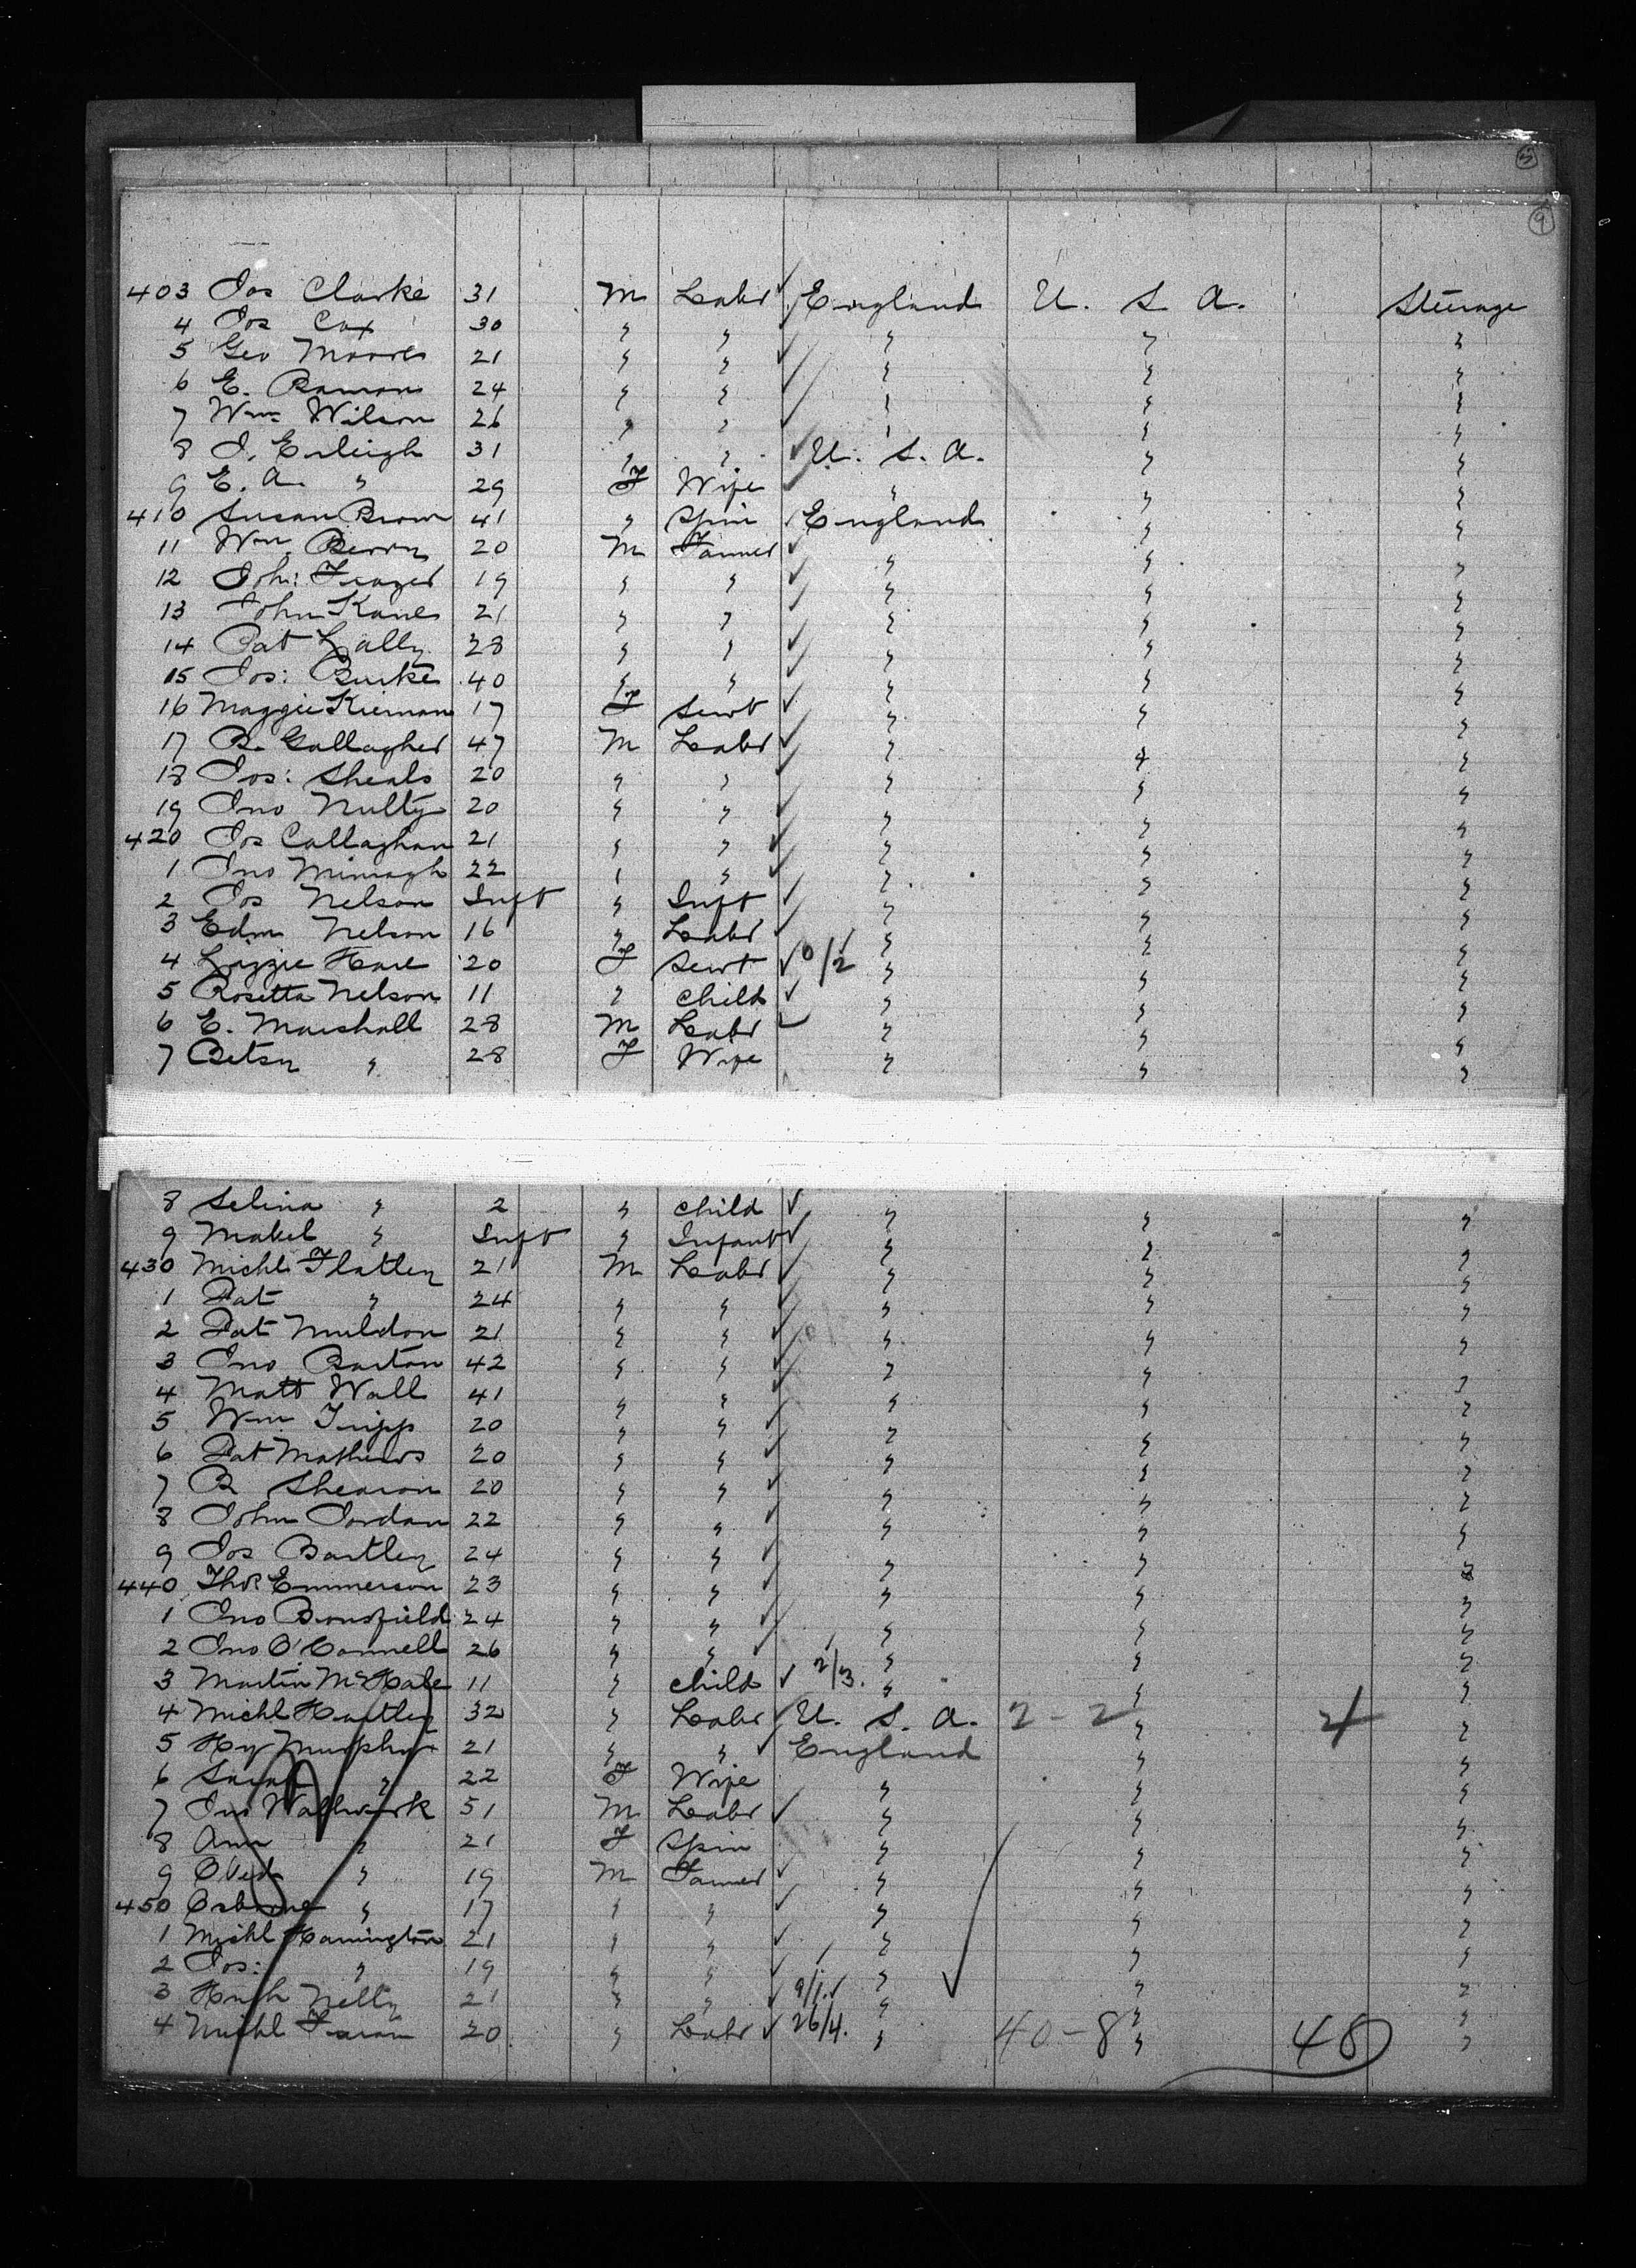 3
9
403 Jos Clarke 31 M Labr England U. S. A. Steerage
4 Jos Cox 30 " " " " "
5 Geo Moores 21 " " " " "
6 E. Baman 24 " " " " "
7 Wm Wilson 26 " " " " "
8 J. Erleigh 31 " " U. S. A. " "
9 E. A. " 29 F Wife " " "
410 Susan Brown 41 " Spin England " "
11 Wm Berry 20 M Farmer " " "
12 Joh: Frazer 19 " " " " "
13 John Kane 21 " " " " "
14 Pat Lally 28 " " " " "
15 Jos: Burke 40 " " " " "
16 Maggie Kiernan 17 F Servt " " "
17 B. Gallagher 47 M Labr " " "
18 Jos: Sheals 20 " " " " "
19 Jno Nulty 20 " " " " "
420 Jos Callaghan 21 " " " " "
1 Jno Mimagh 22 " " " " "
2 Jos Nelson Inft " Inft " " "
3 Edm Nelson 16 " Labr " " "
4 Lizzie Hare 20 F Servt 0/2 " " "
5 Rosetta Nelson 11 " Child " " "
6 E. Marshall 28 M Labr " " "
7 Betsy " 28 F Wife " " "
8 Selina " 2 " Child " " "
9 Mabel " Inft " Infant " " "
430 Michl Flatley 21 M Labr " " "
1 Pat " 24 " " " " "
2 Pat Muldon 21 " " " " "
3 Jno Barton 42 " " " " "
4 Matt Wall 41 " " " " "
5 Wm Tripp 20 " " " " "
6 Pat Mathews 20 " " " " "
7 B Shearon 20 " " " " "
8 John Jordan 22 " " " " "
9 Jos Bartley 24 " " " " "
440 Thos Emmerson 23 " " " " "
1 Jno Bousfield 24 " " " " "
2 Jno O'Connell 26 " " " " "
3 Martin McHale 11 " Child 2/3. " " "
4 Michl Hartley 32 " Labr U. S. A. 2-2 " 4 "
5 Hy Murphy 21 " " England " "
6 Sarah " 22 F Wife " " "
7 Jno Wallwork 51 M Labr " " "
8 Ann " 21 F Spin " " "
9 Obed " 19 M Farmer " " "
450 Osborne " 17 " " " " "
1 Michl Harrington 21 " " " " "
2 Jos: " 19 " " " " "
3 Hugh Nelly 21 " " 9/1. " " "
4 Michl 20 " Labr 26/4. " 40-8 " 48 "